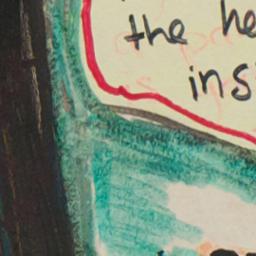 the he
ins